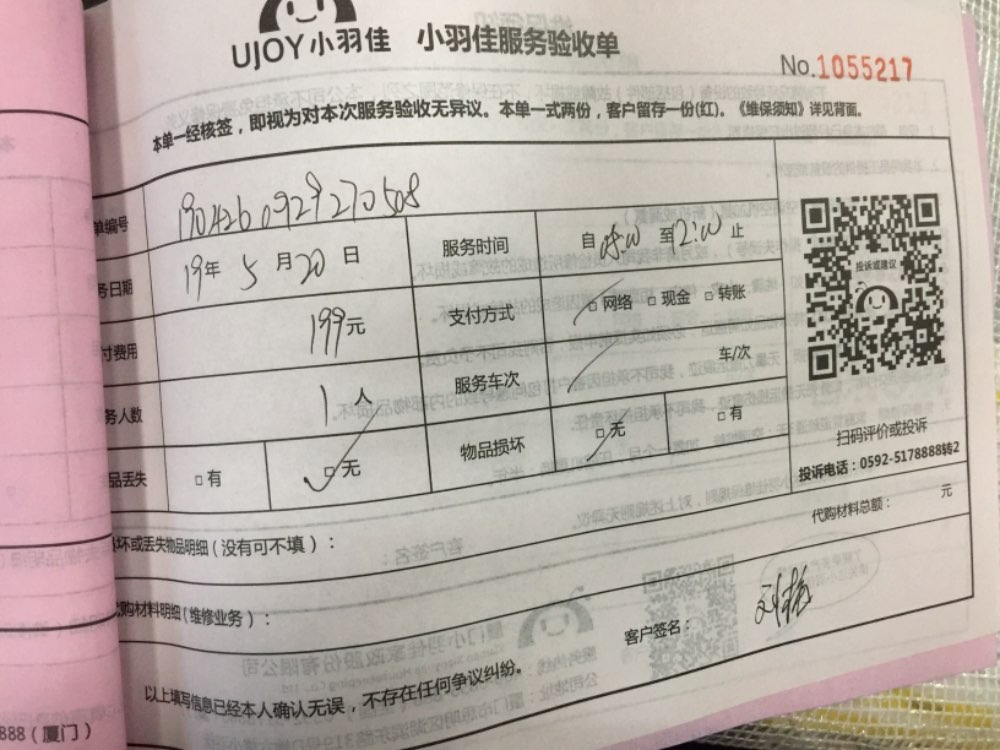 UJOY小羽佳 小羽佳服务验收单
No.1055217
本单一经核签，即视为对本次服务验收无异议。本单一式两份，客户留存一份(红)。《维保须知》详见背面。
单编号 1904260929270508
务日期 19年5月20日 服务时间 自08:00至12:00止
付费用 199元 支付方式 □网络 □现金 □转账
务人数 1人 服务车次 车/次
品丢失 □有 □无 物品损坏 □无 □有
投诉或建议
扫码评价或投诉
投诉电话：0592-5178888转2
坏或丢失物品明细(没有可不填)：
代购材料总额： 元
代购材料明细(维修业务)：
客户签名：
以上填写信息已经本人确认无误，不存在任何争议纠纷。
888(厦门)